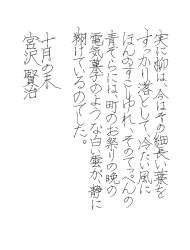 実に柳は、今はその細長い葉を
すっかり落として、冷たい風に
ほんのすこしゆれ、そのてっぺんの
青ぞらには、町のお祭りの晩の
電気菓子のような白い雲が、静に
翔けているのでした。
十月の末
宮沢 賢治